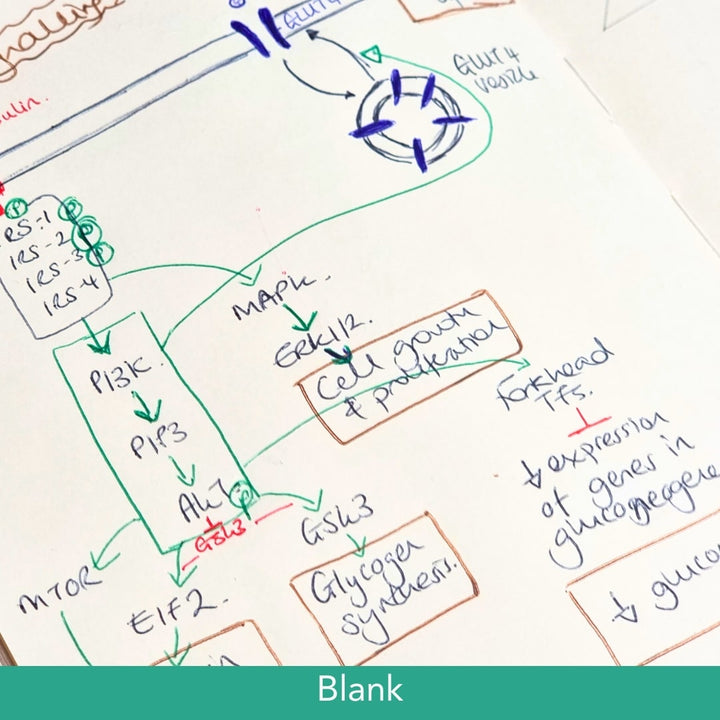 GLUT4
GLUT4
vesicle
IRS-1
IRS-2
IRS-3
IRS-4
P
P
P
P
MAPK.
ERK1/2.
Cell growth
& proliferation
PI3K.
PIP3
Akt
P
GSK3
GSK3
Glycogen
synthesis.
Forkhead
Tfs.
↓ expression
of genes in
MTOR
EIF2.
Blank